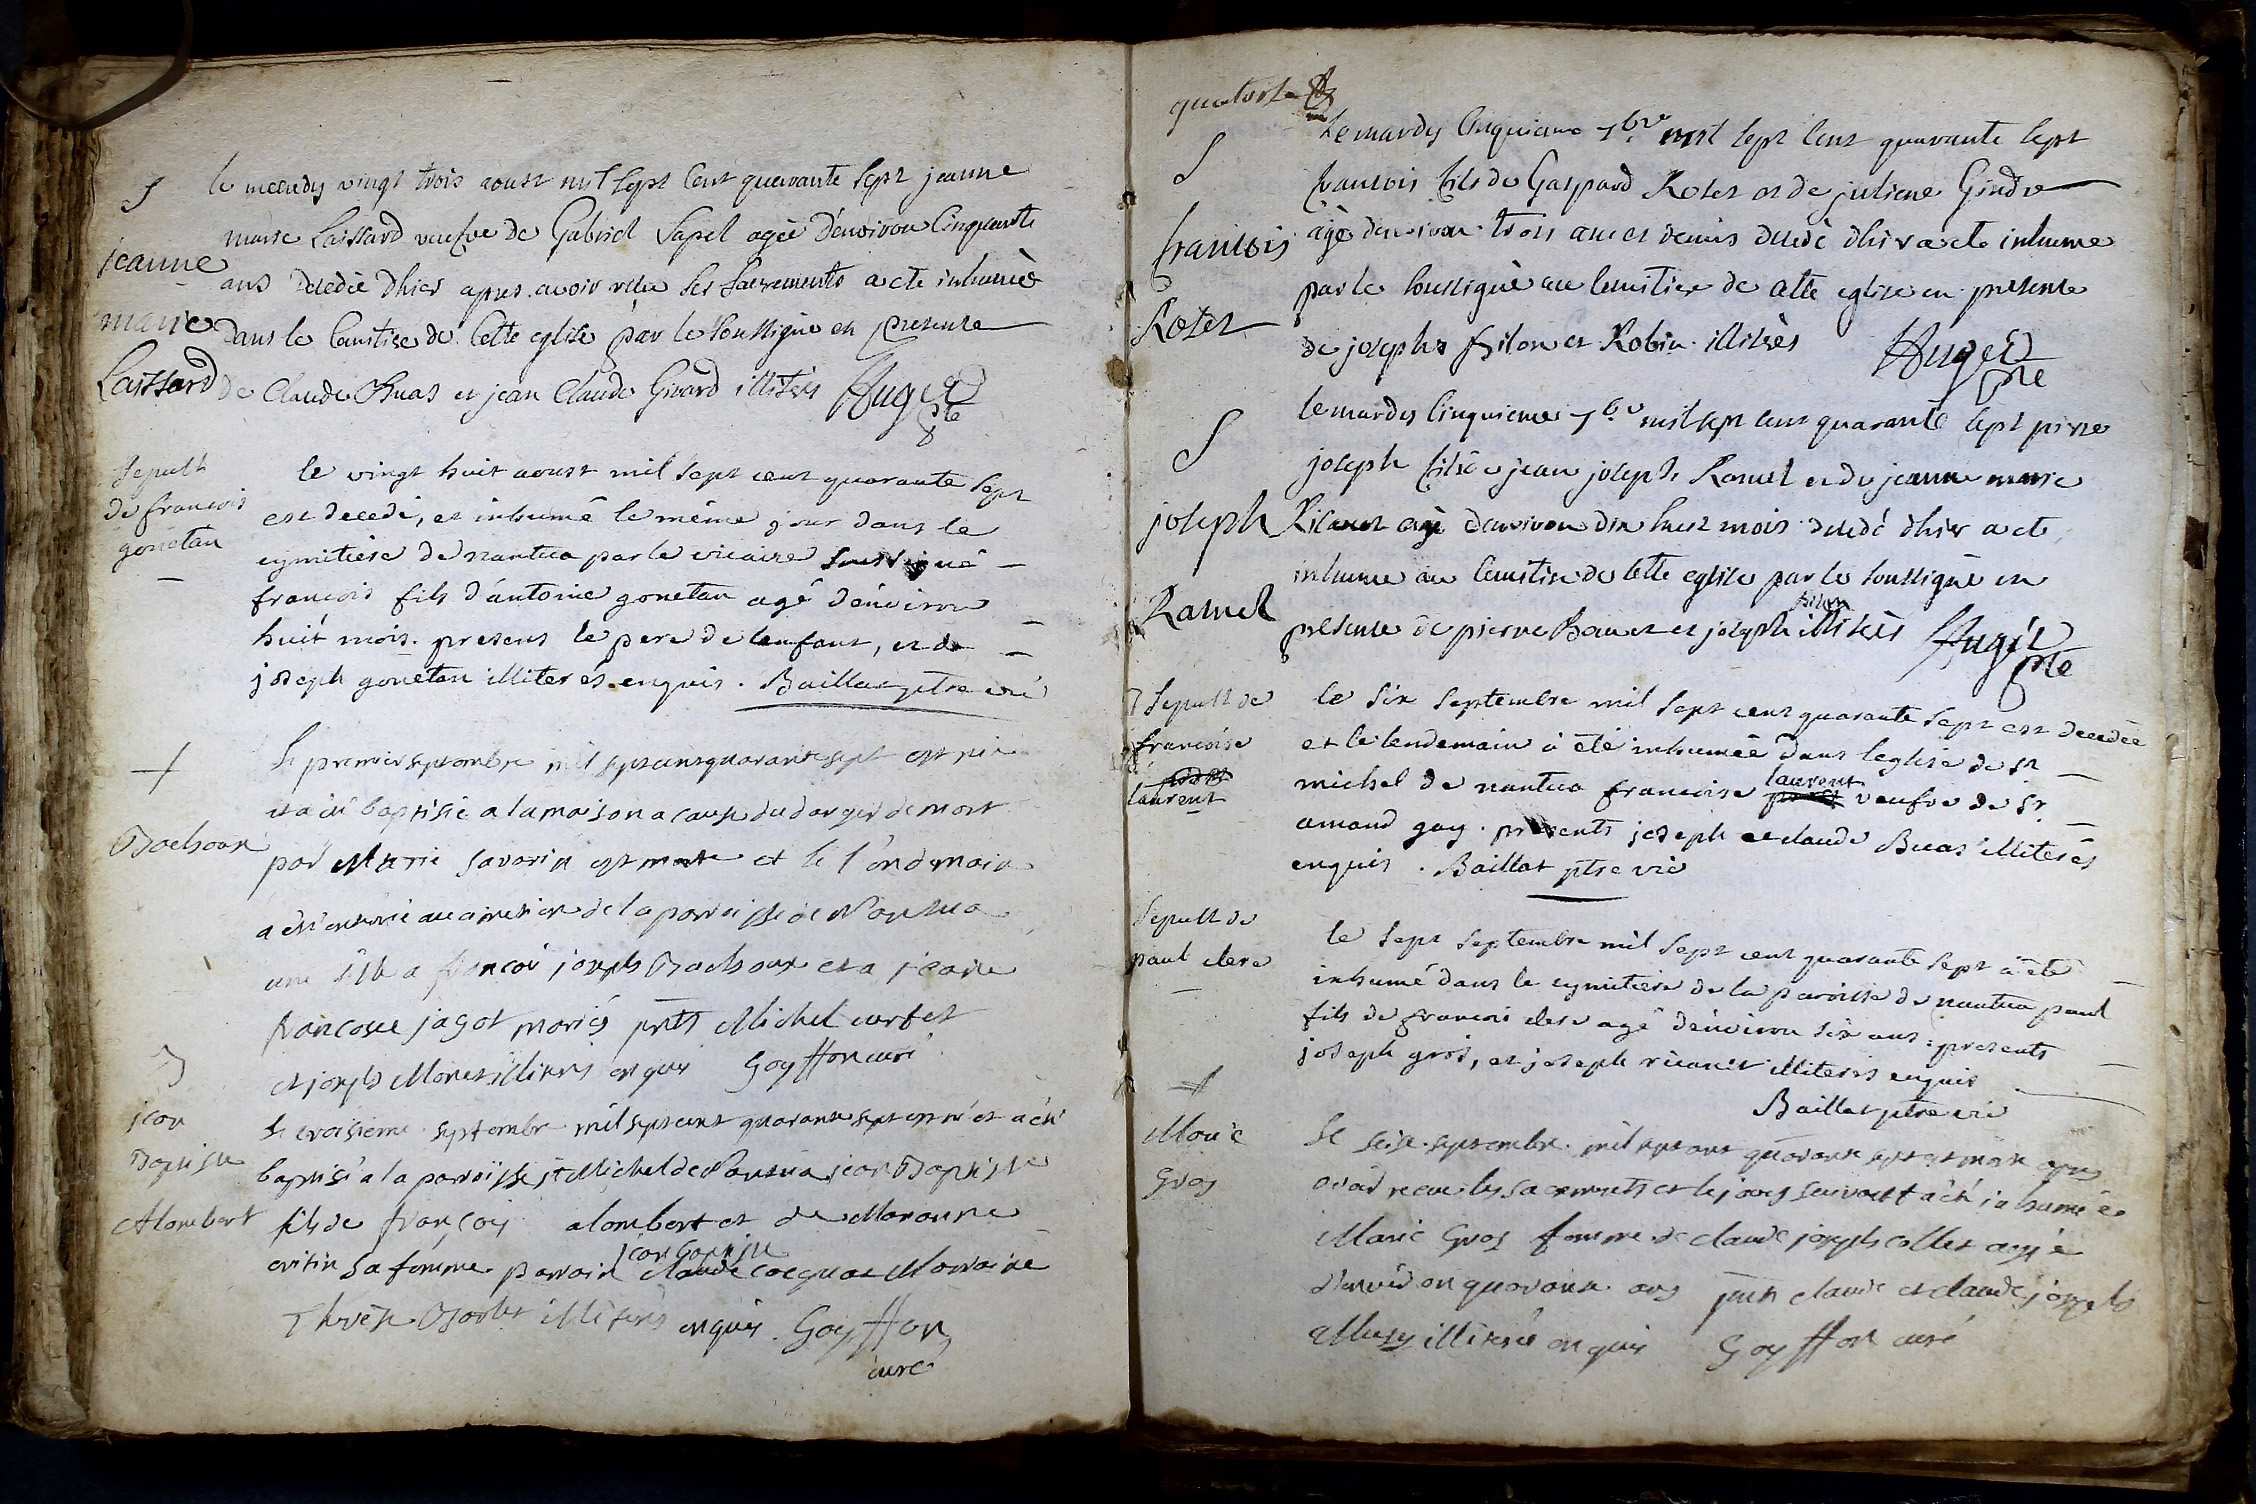 S
jeanne
marie
Laissard
le mecredy vingt trois aoust mil sept cent quarante sept jeanne
marie Laissard veufve de Gabriel Sapel agée d'environ Cinquante
ans decedée d'hier apres avoir receu les Sacrements a ete inhumée
dans le Cemitiere de Cette eglise par le Soussigné en presence
de Claude Buas et jean Claude Girard illiterés
ptre
Sepult
de francois
gonetan
le vingt huit aoust mil sept cent quarante sept
est decedé, et inhumé le même jour dans le
cymitière de nantua par le vicaire soussigné
francois fils d'antoine gonetan agé d'environ
huit mois. presens le pere de lenfant, et de
joseph gonetan illiterés enquis. Baillat ptre vic
Bachoux
le premier septembre mil sept cent quarante sept est né
et a été baptisé a la maison a cause du danger de mort
par Marie Savarin et le l'endemain
a été enterré au cimetiere de la parroisse de Nantua
une fille a françoi joseph Bachoux et a jeane
francoise jagot mariés pnts Michel
et joseph Monet illiterés enquis Goyffon curé
jean
Baptiste
Alombert
le troisieme septembre mil sept cent quarante sept est né et a été
baptisé a la parroisse st Michel de Nantua jean Baptiste
fils de françois alombert et de Marianne
sa femme parrain
jean baptiste
claude cocquat Marraine
illiterés enquis. Goyffon
curé
quatorze
S
francois
Rotet
Le mardy Cinquieme 7bre mil sept Cent quarante sept
francois fils de Gaspard Rotet et de juliene Gindre
agé d'environ trois ans et demis decedé d'hier a ete inhumé
par le soussigné au Cemitiere de Cette eglise en presence
de joseph filon et Robin illiterés
ptre
S
joseph
Ramel
le mardy Cinquieme 7bre mil sept cent quarante sept
joseph fils de jean joseph Ramel et de jeanne marie
agé d'environ dix huit mois decedé d'hier a ete
inhumé au Cemitiere de Cette eglise par le soussigné en
presence de pierre et joseph illiterés
ptre
Sepult de
francoise
laurent
le six septembre mil sept cent quarante sept est decedée
et le lendemain à été inhumée dans leglise de st
michel de nantua francoise laurent veufve de sr
amand guy. presents joseph et claude Buas illiterés
enquis. Baillat ptre vic
Sepult de
paul clere
le sept septembre mil sept cent quarante sept à été
inhumé dans le cymitiere de la paroisse de nantua paul
fils de francois clere agé d'environ six ans. presents
joseph gros, et joseph illiterés enquis
Baillat ptre vic
Marie
Gros
le seise septembre mil sept cent quarante sept est morte apres
avoir receu les sacrements et le jour suivant a été inhumée
Marie Gros femme de claude joseph collet agée
d'environ quarante ans claude et claude joseph
illiterés enquis Goyffon curé